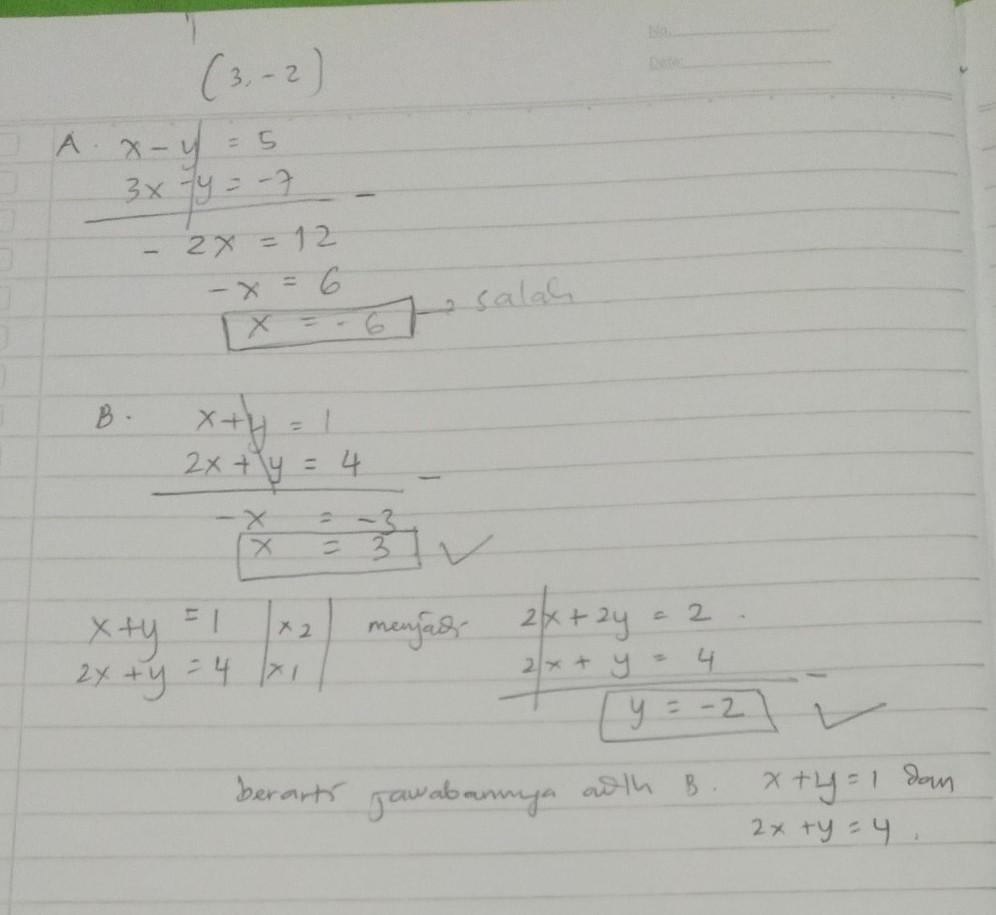 No.
Date:
(3, -2)
A. x - y = 5
3x - y = -7 -
- 2x = 12
-x = 6
x = -6 → salah
B. x + y = 1
2x + y = 4 -
-x = -3
x = 3 ✓
x + y = 1 | x2 | menjadi 2x + 2y = 2
2x + y = 4 | x1 | 2x + y = 4 -
y = -2 ✓
berarti jawabannya adlh B. x + y = 1 dan
2x + y = 4.